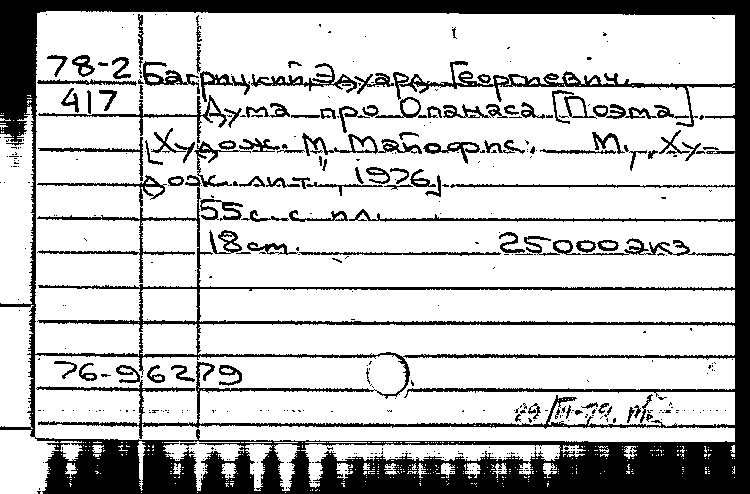 78-2 Багрицкий, Эдуард Георгиевич.
417 Дума про Опанаса [Поэма].
[Худож. М. Майофис. М., "Ху-
дож. лит.", 1976]
55 с. с ил.
18 см. 25000 экз
76-96279
29/III-79.